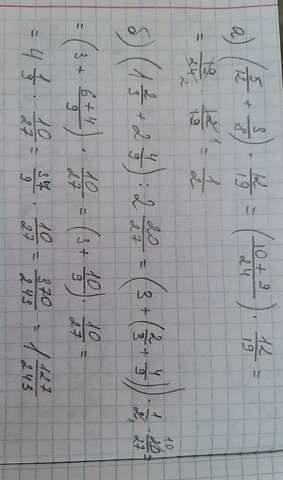 а) (5/12 + 3/8) · 12/19 = (10+9/24) · 12/19 =
= 19/24 · 12/19 = 1/2
б) (1 2/3 + 2 4/9) : 2 20/27 = (3 + (2/3 + 4/9)) · 1/2 · 20/27
= (3 + 6+4/9) · 10/27 = (3 + 10/9) · 10/27 =
= 4 1/9 · 10/27 = 37/9 · 10/27 = 370/243 = 1 127/243